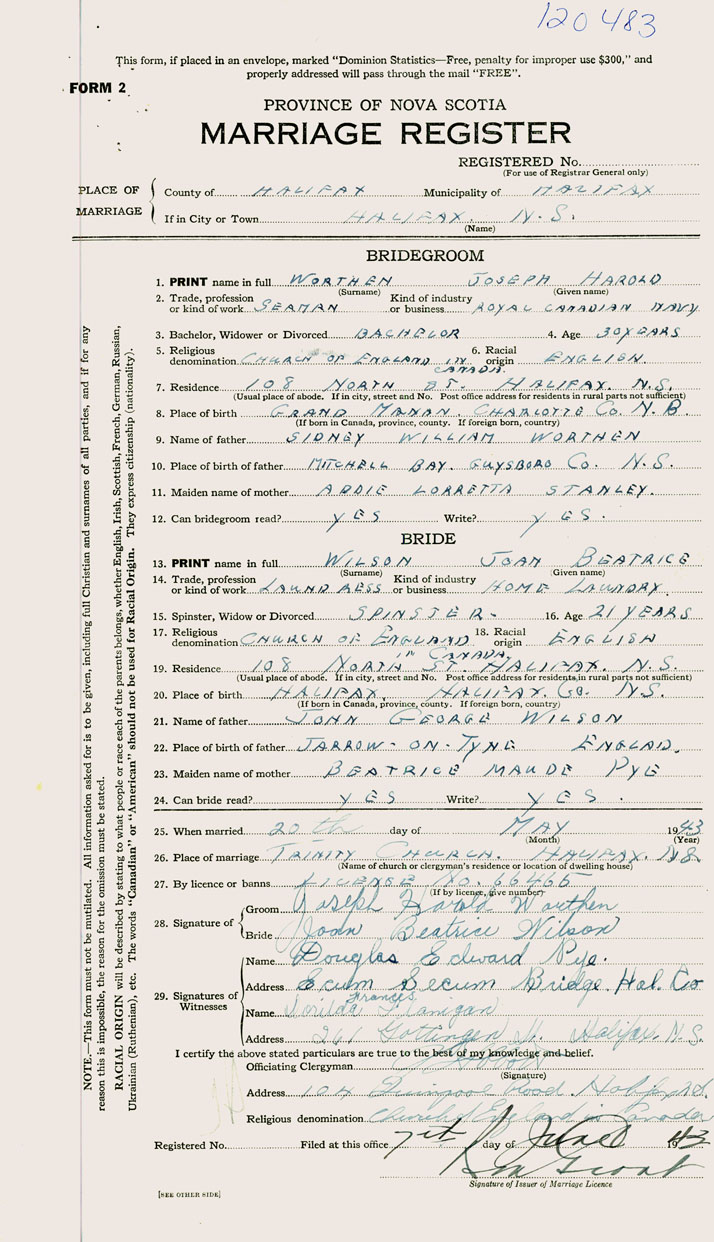 120483
This form, if placed in an envelope, marked "Dominion Statistics—Free, penalty for improper use $300," and
properly addressed will pass through the mail "FREE".
FORM 2
PROVINCE OF NOVA SCOTIA
MARRIAGE REGISTER
REGISTERED No.
(For use of Registrar General only)
PLACE OF MARRIAGE
County of HALIFAX Municipality of HALIFAX
If in City or Town HALIFAX. N.S.
(Name)
BRIDEGROOM
1. PRINT name in full WORTHEN JOSEPH HAROLD
(Surname) (Given name)
2. Trade, profession or kind of work SEAMAN Kind of industry or business ROYAL CANADIAN NAVY
3. Bachelor, Widower or Divorced BACHELOR 4. Age 30 YEARS
5. Religious denomination CHURCH OF ENGLAND IN CANADA. 6. Racial origin ENGLISH.
7. Residence 108 NORTH ST. HALIFAX. N.S.
(Usual place of abode. If in city, street and No. Post office address for residents in rural parts not sufficient)
8. Place of birth GRAND MANAN. CHARLOTTE CO. N.B.
(If born in Canada, province, county. If foreign born, country)
9. Name of father SIDNEY WILLIAM WORTHEN
10. Place of birth of father MITCHELL BAY. GUYSBORO CO. N.S.
11. Maiden name of mother ADDIE LORRETTA STANLEY.
12. Can bridegroom read? YES Write? YES.
BRIDE
13. PRINT name in full WILSON JOAN BEATRICE
(Surname) (Given name)
14. Trade, profession or kind of work LAUNDRESS Kind of industry or business HOME LAUNDRY.
15. Spinster, Widow or Divorced SPINSTER- 16. Age 21 YEARS
17. Religious denomination CHURCH OF ENGLAND IN CANADA. 18. Racial origin ENGLISH
19. Residence 108 NORTH ST. HALIFAX. N.S.
(Usual place of abode. If in city, street and No. Post office address for residents in rural parts not sufficient)
20. Place of birth HALIFAX, HALIFAX. Co. N.S.
(If born in Canada, province, county. If foreign born, country)
21. Name of father JOHN GEORGE WILSON
22. Place of birth of father JARROW-ON-TYNE ENGLAD.
23. Maiden name of mother BEATRICE MAUDE PYE
24. Can bride read? YES Write? YES.
25. When married 20th day of MAY 1943
(Month) (Year)
26. Place of marriage TRINITY CHURCH. HALIFAX. N.S.
(Name of church or clergyman's residence or location of dwelling house)
27. By licence or banns LICENSE No. 66465
(If by licence, give number)
28. Signature of
Groom Joseph Harold Worthen
Bride Joan Beatrice Wilson
29. Signatures of Witnesses
Name Douglas Edward Pye.
Address Ecum Secum Bridge. Hal. Co
Name Frances Flanigan
Address 261 Gottingen St. Halifax. N.S.
I certify the above stated particulars are true to the best of my knowledge and belief.
Officiating Clergyman
(Signature)
Address 104 Quinpool Road. Halifax N.S.
Religious denomination Church of England in Canada
Registered No. Filed at this office 7th day of 1943
Signature of Issuer of Marriage Licence
[SEE OTHER SIDE]
NOTE.—This form must not be mutilated. All information asked for is to be given, including full Christian and surnames of all parties, and if for any
reason this is impossible, the reason for the omission must be stated.
RACIAL ORIGIN will be described by stating to what people or race each of the parents belongs, whether English, Irish, Scottish, French, German, Russian,
Ukrainian (Ruthenian), etc. The words "Canadian" or "American" should not be used for Racial Origin. They express citizenship (nationality).